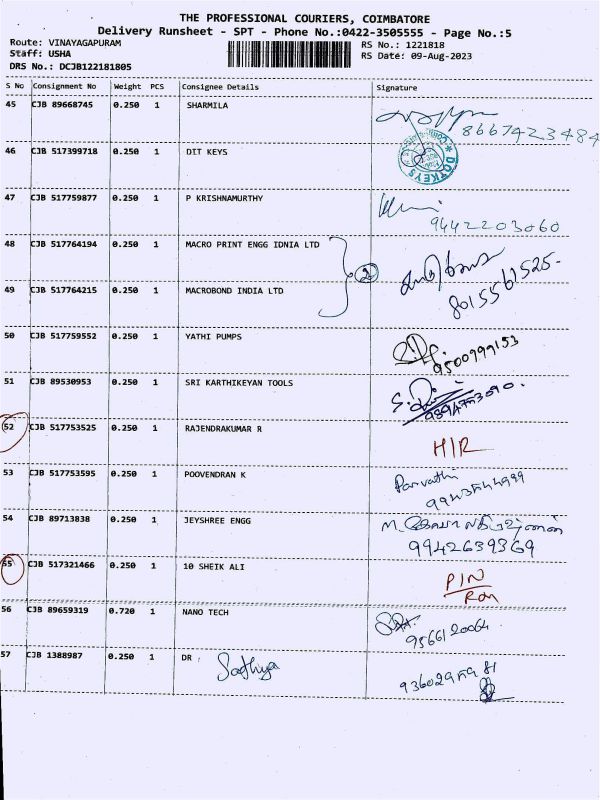 THE PROFESSIONAL COURIERS, COIMBATORE
Delivery Runsheet - SPT - Phone No.:0422-3505555 - Page No.:5
Route: VINAYAGAPURAM
RS No.: 1221818
Staff: USHA
RS Date: 09-Aug-2023
DRS No.: DCJB122181805
S No Consignment No Weight PCS Consignee Details Signature
45 CJB 89668745 0.250 1 SHARMILA
8667423484
46 CJB 517399718 0.250 1 DIT KEYS
DOTKEYS
47 CJB 517759877 0.250 1 P KRISHNAMURTHY
9442203060
48 CJB 517764194 0.250 1 MACRO PRINT ENGG IDNIA LTD
2
49 CJB 517764215 0.250 1 MACROBOND INDIA LTD
8015561525-
50 CJB 517759552 0.250 1 YATHI PUMPS
9500999153
51 CJB 89530953 0.250 1 SRI KARTHIKEYAN TOOLS
52 CJB 517753525 0.250 1 RAJENDRAKUMAR R
H/R
53 CJB 517753595 0.250 1 POOVENDRAN K
Parvathi
54 CJB 89713838 0.250 1 JEYSHREE ENGG
9942639369
55 CJB 517321466 0.250 1 10 SHEIK ALI
PIN
56 CJB 89659319 0.720 1 NANO TECH
9566120064
57 CJB 1388987 0.250 1 DR Sathya